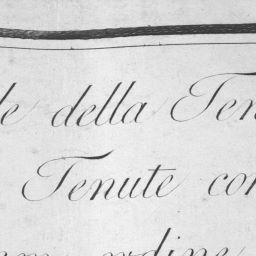 le della Ten
Tenute con
ordine